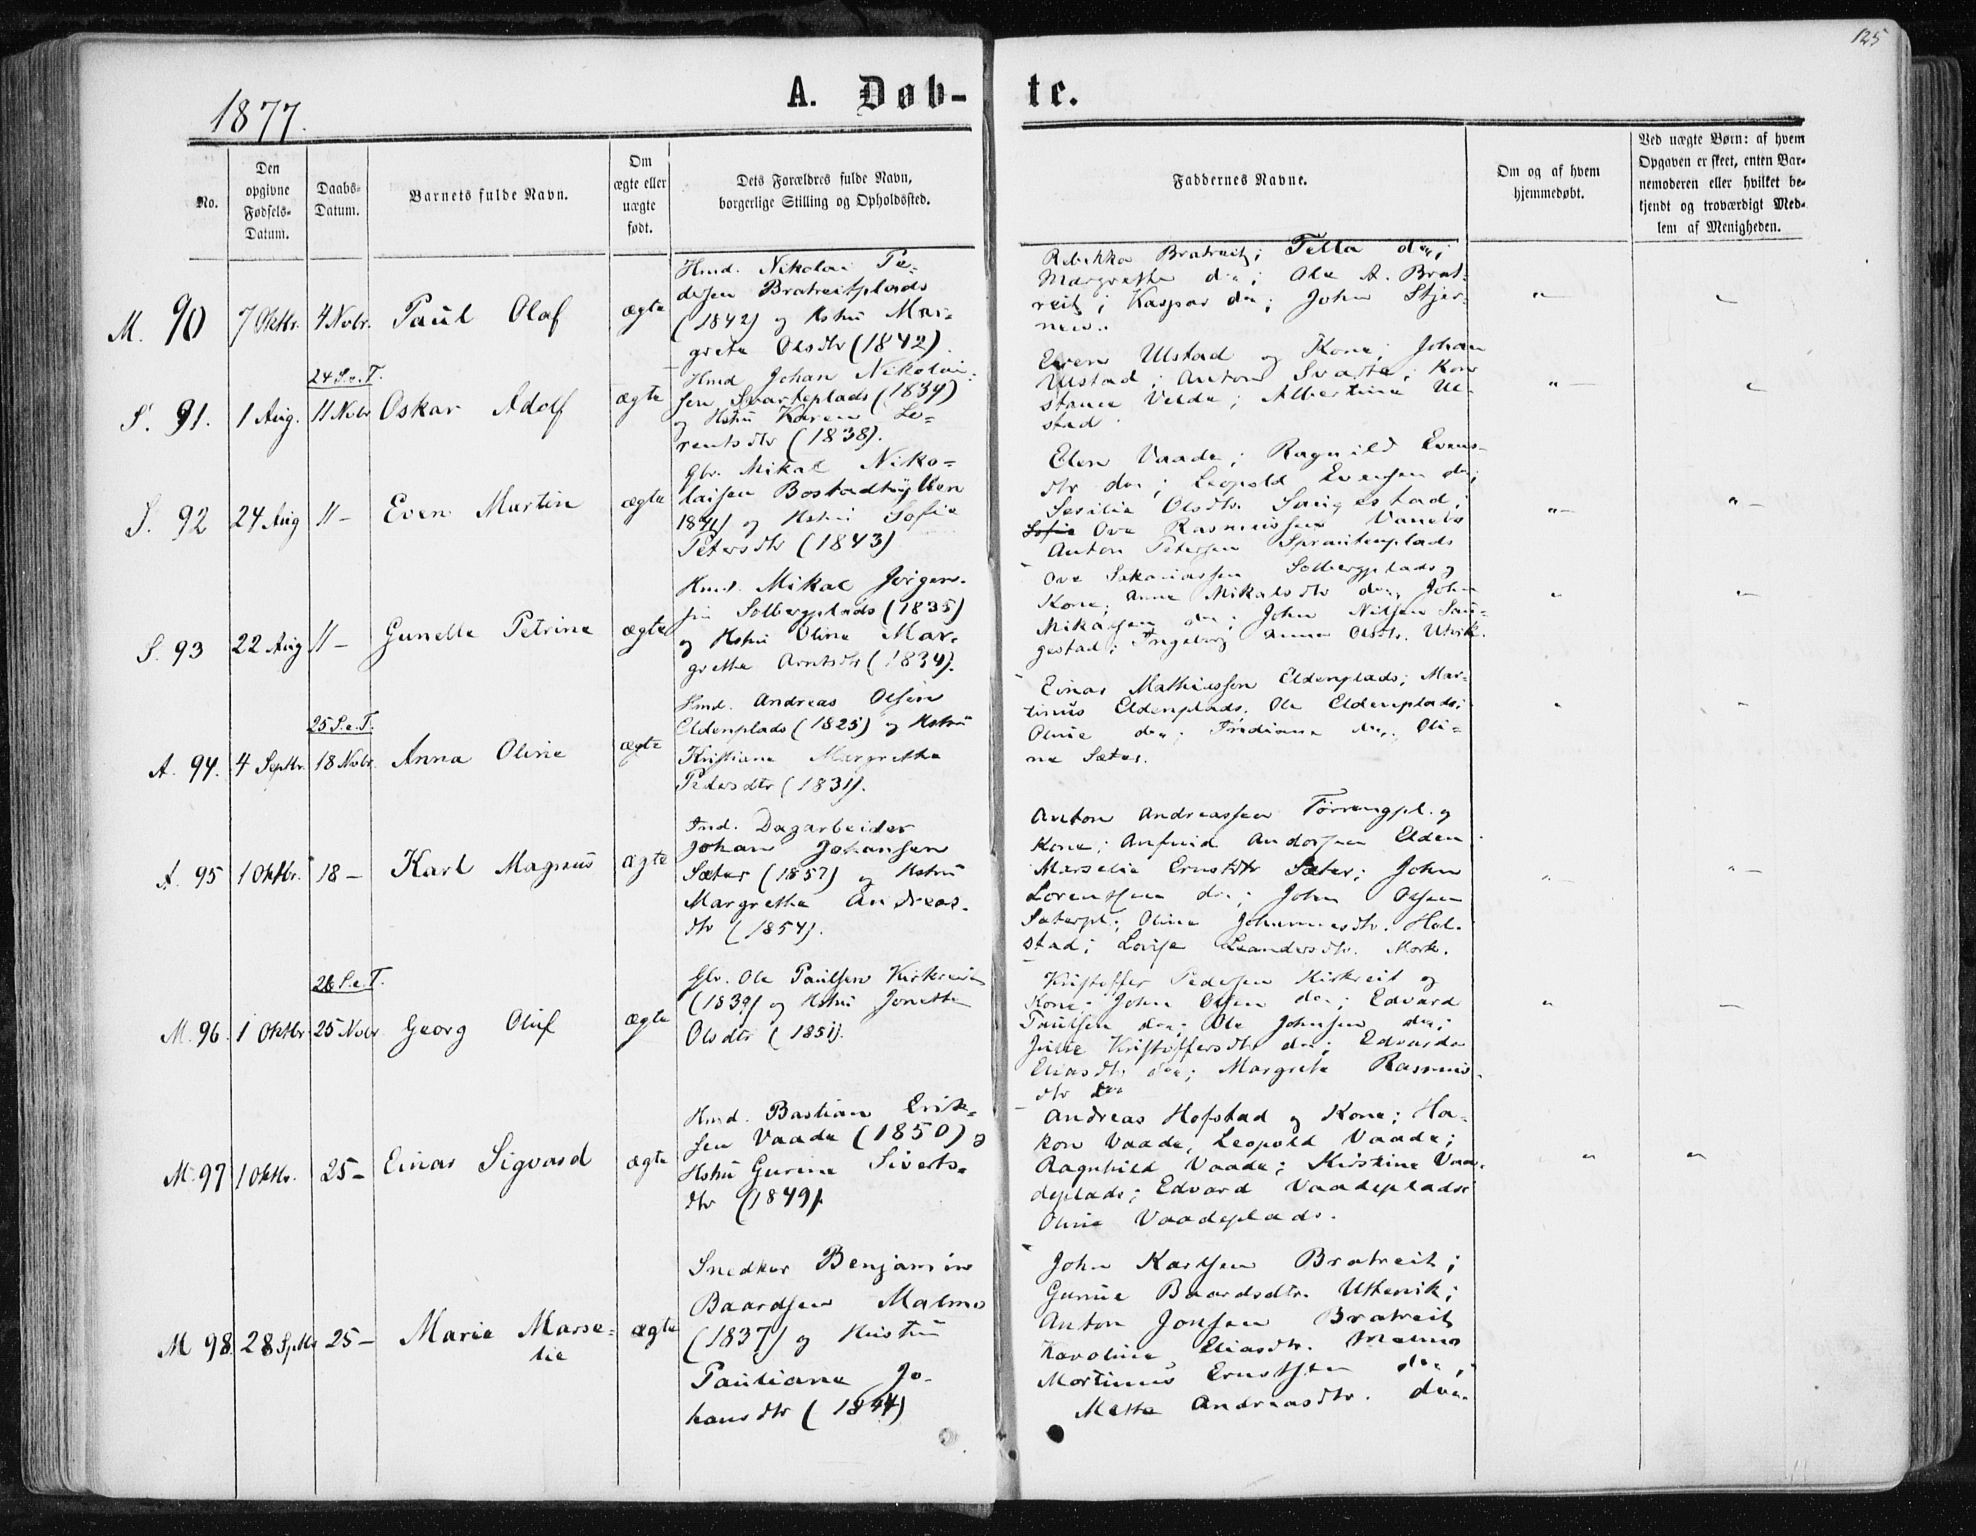 125
1877.
A. Døb-
te.
No.
Den
opgivne
Fødsels-
Datum.
Daabs-
Datum.
Barnets fulde Navn.
Om
ægte eller
uægte
født.
Dets Forældres fulde Navn,
borgerlige Stilling og Opholdssted.
Faddernes Navne.
Om og af hvem
hjemmedøbt.
Ved uægte Børn: af hvem
Opgaven er skeet, enten Bar-
nemoderen eller hvilket be-
kjendt og troværdigt Med-
lem af Menigheden.
M. 90 7 Oktbr. 4 Nvbr. Paul Olaf ægte
Hmd. Nikolai Pe-
dersen Bratreitplads
(1842) og Hstru Mar-
grete Olsdtr (1842).
Rebekka Bratreit;
Margrethe do; Ole A. Brat-
reit; Kaspar do; John Stjer-
24 S. e. T.
S. 91. 1 Aug. 11 Nvbr Oskar Adolf ægte
Hmd Johan Nikolai-
sen Svarteplads (1834)
og Hstru Karen Lo-
rentsdtr (1838).
Even Ulstad og Kone; Johan
Ulstad; Anton Svarte; Kon
stance Velde; Albertine Ul-
stad
S. 92 24 Aug 11 - Even Martin ægte
Gbr. Mikal Niko-
laisen Bostadhyllen
1841) og Hstru Sofie
Petersdtr (1843)
Elen Vaade; Ragnild Evens-
dtr do; Leopold Evensen do;
Sesilie Olsdtr. Saugestad;
Sofie Ove Rasmussen
Anton Petersen
S. 93 22 Aug 11 - Gunelle Petrine ægte
Hmd. Mikal Jørgen-
sen Solbergplads (1835)
og Hstru Oline Mar-
grethe Arntsdtr (1834).
Ove Sakariassen Solbergplads og
Kone; Anne Mikalsdtr do; John
Mikalsen do; John Nilsen Sau-
gestad; Ingeborg Anna Olsdtr. Utvik.
25 S. e. T.
A. 94. 4 Septbr. 18 Nvbr. Anna Oline ægte
Hmd. Andreas Olsen
Eldenplads (1825) og Hstru
Kristiane Margrethe
Pedersdtr (1831).
Einar Mathiassen Eldenplads; Mar-
tinus Eldenplads. Ole Eldenplads;
Oline do; do. Oli-
ne Sæter.
A. 95 1 Oktbr. 18 - Karl Magnus ægte
Ind. Dagarbeider
Johan Johansen
Sæter (1857) og Hstru
Margrethe Andreas-
dtr (1854).
Anton Andreassen Tørrengpl. og
Kone; Andorsen Elden
Marselie Ernstdtr Sæter; John
Lorentsen do; John Olsen
Sæterpl; Oline Johannesdtr. Hol-
stad; Lovise Leandersdtr. Mork.
26 S. e. T.
M. 96. 1 Oktbr 25 Nvbr Georg Oluf ægte
Gbr. Ole Paulsen Kirkreit
(1839) og Hstru Jonette
Olsdtr (1851).
Kristoffer Pedersen Kirkreit og
Kone. John Olsen do; Edvard
Paulsen do; Ole Johnsen do;
Julie Kristoffersdtr do; Edvarda
Eliasdtr do; Margrete Rasmus-
dtr do
M. 97 1 Oktbr. 25 - Einar Sigvard ægte
Hmd. Bastian Erik-
sen Vaade (1850) og
Hstru Gurine Siverts-
dtr (1849).
Andreas Hofstad og Kone; Ha-
kon Vaade, Leopold Vaade;
Ragnhild Vaade; Kirstine Vaa-
deplads; Edvard Vaadeplads;
Oline Vaadeplads.
M 98. 28 Sptbr 25 - Marie Marse-
lie ægte
Snedker Benjamin
Baardsen Malmo
(1837) og Hustru
Pauliane Jo-
hansdtr (1844)
John Karlsen Bratreit;
Gurine Baardsdtr. Uttervik;
Anton Jonsen Bratreit
Karoline Eliasdtr. Malmo
Mortinus Ernstsen do;
Mette Andreasdtr. do.